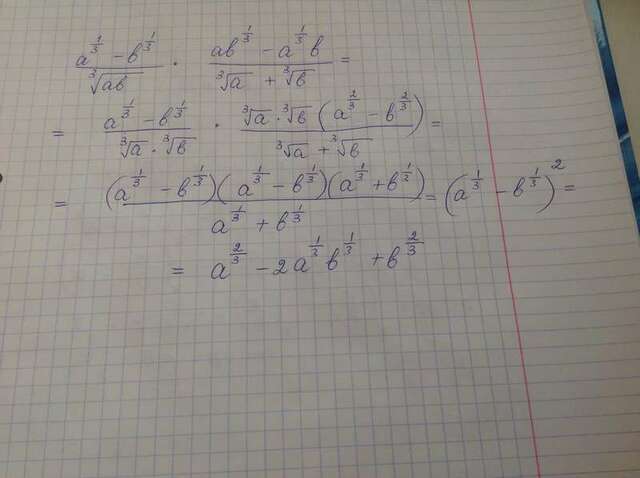 (a^{1/3} − b^{1/3}) / ∛(ab) · (ab^{1/3} − a^{1/3}b) / (∛a + ∛b) =
= (a^{1/3} − b^{1/3}) / (∛a · ∛b) · (∛a · ∛b (a^{2/3} − b^{2/3})) / (∛a + ∛b) =
= ((a^{1/3} − b^{1/3})(a^{1/3} − b^{1/3})(a^{1/3} + b^{1/3})) / (a^{1/3} + b^{1/3}) = (a^{1/3} − b^{1/3})^2 =
= a^{2/3} − 2a^{1/3}b^{1/3} + b^{2/3}